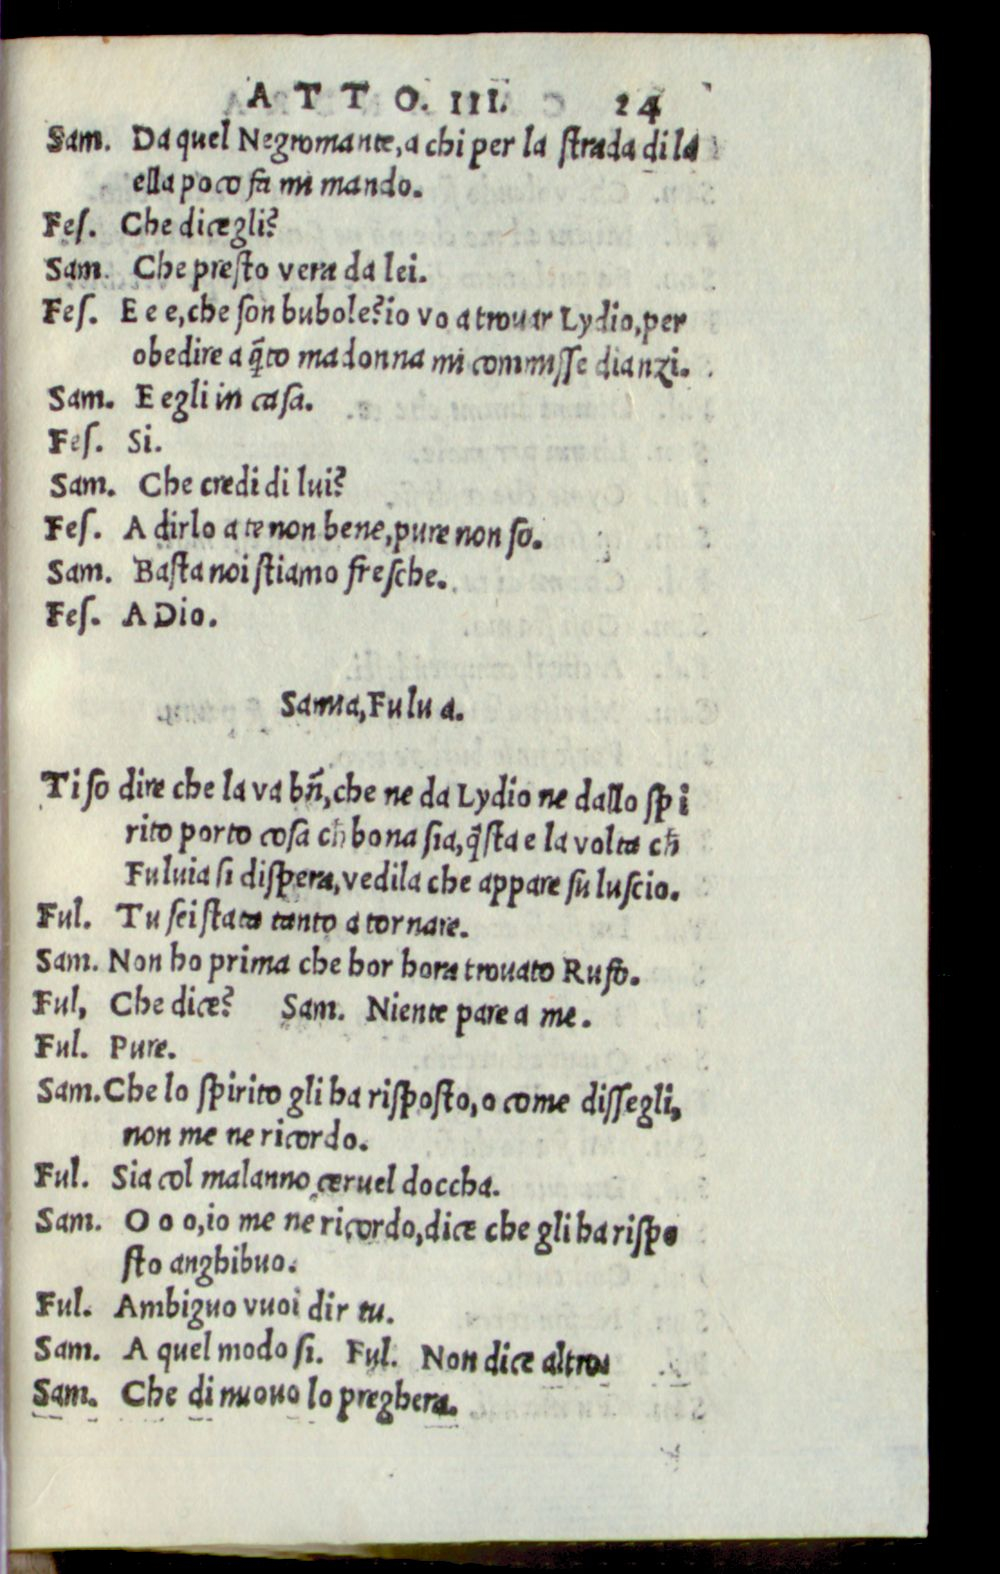 ATTO. III. 24
Sam. Da quel Negromante, a chi per la ſtrada di la
ella poco fa mi mando.
Feſ. Che dice gli?
Sam. Che preſto vera da lei.
Feſ. E e e, che ſon bubole? io vo a trouar Lydio, per
obedire a q̃to madonna mi commiſſe dianzi.
Sam. E egli in caſa.
Feſ. Si.
Sam. Che credi di lui?
Feſ. A dirlo a te non bene, pure non ſo.
Sam. Baſta noi ſtiamo freſche.
Feſ. A Dio.
Samia, Fuluia.
Ti ſo dire che la va bñ, che ne da Lydio ne dallo ſpi
rito porto coſa ch̃ bona ſia, q̃ſta e la volta ch̃
Fuluia ſi diſpera, vedila che appare ſu luſcio.
Ful. Tu ſei ſtata tanto a tornare.
Sam. Non ho prima che hor hora trouato Rufo.
Ful, Che dice? Sam. Niente pare a me.
Ful. Pure.
Sam. Che lo ſpirito gli ha riſpoſto, o come diſſegli,
non me ne ricordo.
Ful. Sia col malanno ceruel doccha.
Sam. O o o, io me ne ricordo, dice che gli ha riſpo
ſto anghibuo.
Ful. Ambiguo vuoi dir tu.
Sam. A quel modo ſi. Ful. Non dice altro.
Sam. Che di nuouo lo preghera.